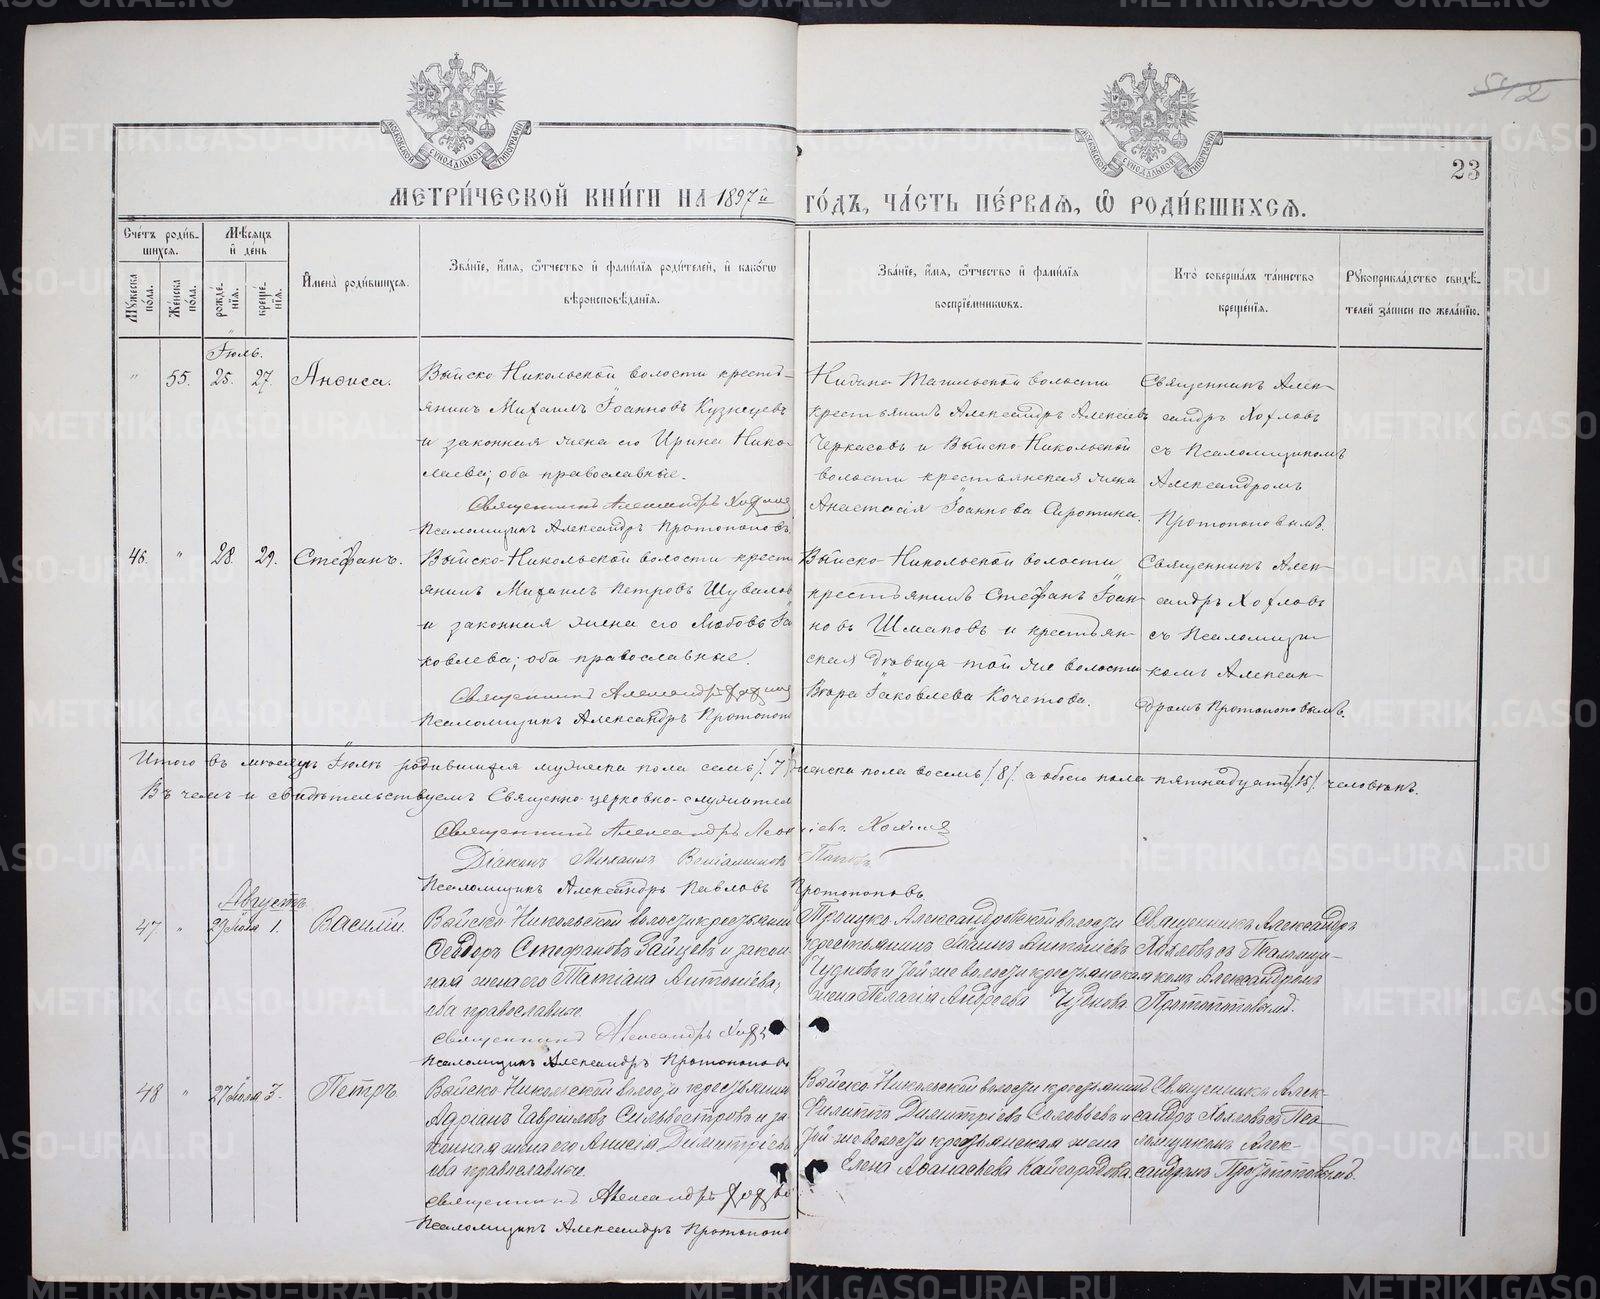 542
23
МОСКОВСКОЙ СѴНОДАЛЬНОЙ ТИПОГРАФІИ
МОСКОВСКОЙ СѴНОДАЛЬНОЙ ТИПОГРАФІИ
МЕТРИ́ЧЕСКОЙ КНИ́ГИ НА 1897й ГО́ДЪ, ЧА́СТЬ ПЕ́РВАѦ, Ѡ РОДИ́ВШИХСѦ.
Сче́тъ роди́вшихсѧ.
Мѣ́сѧцъ и҆ де́нь
Мꙋ́жеска по́ла.
Же́нска по́ла.
рожде́нїѧ.
креще́нїѧ.
И҆мена̀ роди́вшихсѧ.
Зва́нїе, и҆́мѧ, ѻ҆́тчество и҆ фами́лїѧ роди́телей, и҆ како́гѡ
вѣроисповѣ́данїѧ.
Зва́нїе, и҆́мѧ, ѻ҆́тчество и҆ фами́лїѧ
воспрїе́мникѡвъ.
Кто̀ соверша́лъ та́инство
креще́нїѧ.
Рꙋкоприкла́дство свидѣ́-
телей за́писи по жела́нїю.
Іюль.
" 55. 25. 27. Анѳиса.
Выйско-Никольской волости кресть-
янинъ Михаилъ Іоанновъ Кузнецевъ
и законная жена его Ирина Нико-
лаева; оба православные.
Священникъ Александръ Хохловъ
Псаломщикъ Александръ Протопоповъ.
Нижно-Тагильской волости
крестьянинъ Александръ Алексѣевъ
Черкасовъ и Выйско-Никольской
волости крестьянская жена
Анастасія Іоаннова Сиротина.
Священникъ Алек-
сандръ Хохловъ
съ Псаломщикомъ
Александромъ
Протопоповымъ.
46. " 28. 29. Стефанъ.
Выйско-Никольской волости кресть
янинъ Михаилъ Петровъ Шуваловъ
и законная жена его Любовь Іа
ковлева; оба православные.
Священникъ Александръ Хохловъ
Псаломщикъ Александръ Протопопо
Выйско-Никольской волости
крестьянинъ Стефанъ Іоан-
новъ Шмаковъ и крестьян-
ская дѣвица той же волости
Вѣра Іаковлева Кочетова.
Священникъ Алек-
сандръ Хохловъ
съ Псаломщи-
комъ Алексан-
дромъ Протопоповымъ.
Итого въ мѣсяцѣ Іюлѣ родившихся мужеска пола семь /7/ женска пола восемь /8/ а обоего пола пятнадцать /15/ человѣкъ.
Въ чемъ и свидѣтельствуемъ Священно-церковно-служител
Священникъ Александръ Леонтіевъ Хохловъ
Діаконъ Михаилъ Веніаминовъ Поповъ
Псаломщикъ Александръ Павловъ Протопоповъ
Августъ
47 " 29 Іюля 1. Василій.
Выйско-Никольской волости крестьянинъ
Ѳеодоръ Стефановъ Зайцевъ и закон-
ная жена его Татіана Антоніева,
оба православные
Священникъ Александръ Хохл
Псаломщикъ Александръ Протопоповъ
Троицко-Александровской волости
крестьянинъ Іоаннъ Антоніевъ
Чудновъ и той же волости крестьянская
жена Пелагія Андреева Чуднова.
Священникъ Александръ
Хохловъ съ Псаломщи-
комъ Александромъ
Протопоповымъ.
48 " 27 Іюля 3. Петръ.
Выйско-Никольской волости крестьянинъ
Адріанъ Гавріиловъ Сильвестровъ и за
конная жена его Анисія Димитріева
оба православные.
Священникъ Александръ Хохловъ
Псаломщикъ Александръ Протопопо
Выйско-Никольской волости крестьянинъ
Филиппъ Димитріевъ Соловьевъ и
той же волости крестьянская жена
Елена Аѳанасьева Кайгородова.
Священникъ Алек-
сандръ Хохловъ съ Пса-
ломщикомъ Алек-
сандромъ Протопоповымъ.
METRIKI.GASO-URAL.RU